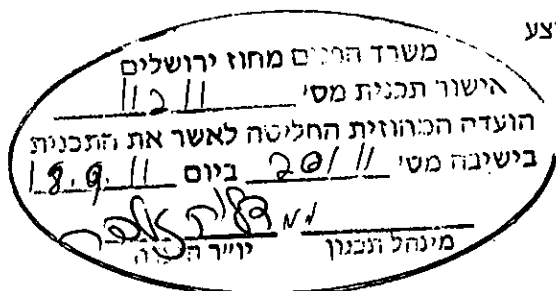 צע
משרד הפנים מחוז ירושלים
אישור תכנית מס' 11211
הועדה המחוזית החליטה לאשר את התכנית
בישיבה מס' 201111 ביום 18.9.11
מינהל תכנון יו"ר הועדה